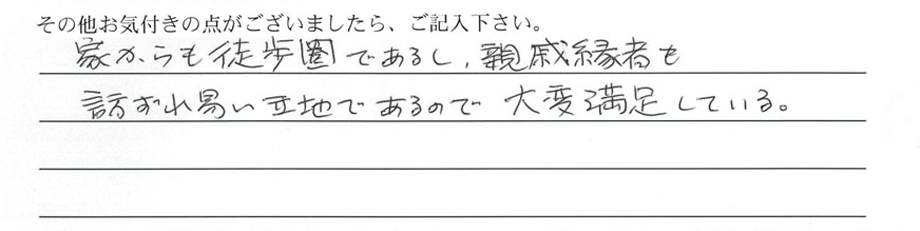 その他お気付きの点がございましたら、ご記入下さい。
家からも徒歩圏であるし、親戚縁者も
訪ずれ易い立地であるので大変満足している。